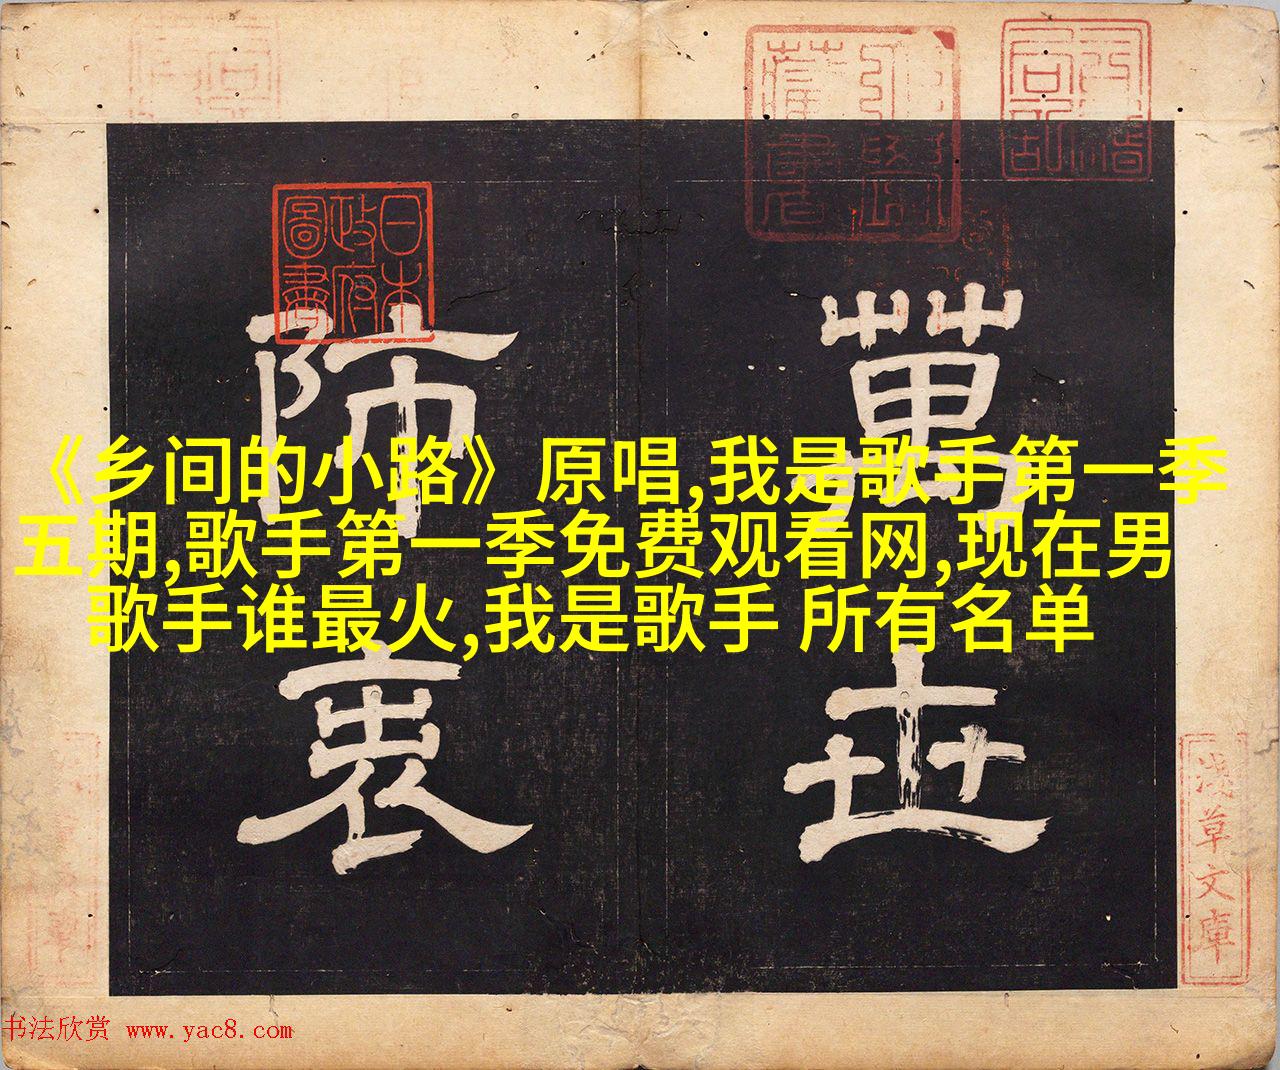 《乡间的小路》原唱,我是歌手第一季
五期,歌手第一季免费观看网,现在男
歌手谁最火,我是歌手 所有名单
萬世
師表
日本
政府
圖書
淺草文庫
书法欣赏 www.yac8.com